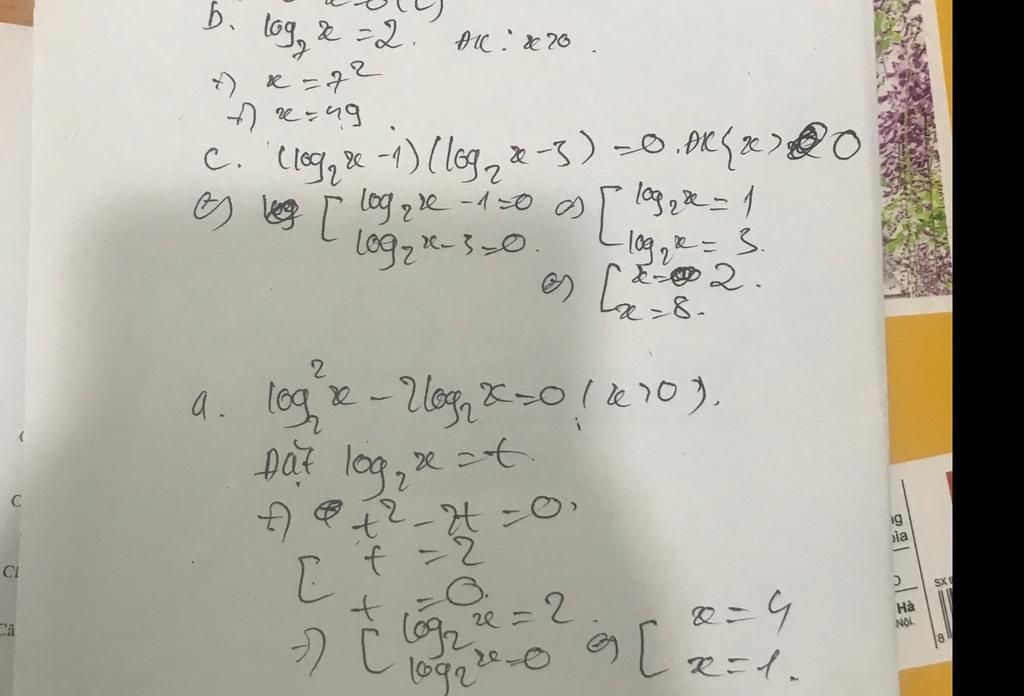 b. log₇x = 2. ĐK: x>0.
=) x = 7²
=) x = 49.
c. (log₂x - 1)(log₂x - 3) = 0. ĐK{x > 0
(=) [ log₂x - 1 = 0 (=) [ log₂x = 1
log₂x - 3 = 0. log₂x = 3.
(=) [ x = 2.
x = 8.
a. log₂²x - 2log₂x = 0 (x>0).
Đặt log₂x = t.
=) t² - 2t = 0.
[ t = 2
t = 0.
=) [ log₂x = 2. (=) [ x = 4
log₂x = 0 x = 1.
Hà
NỘI.
SX
8